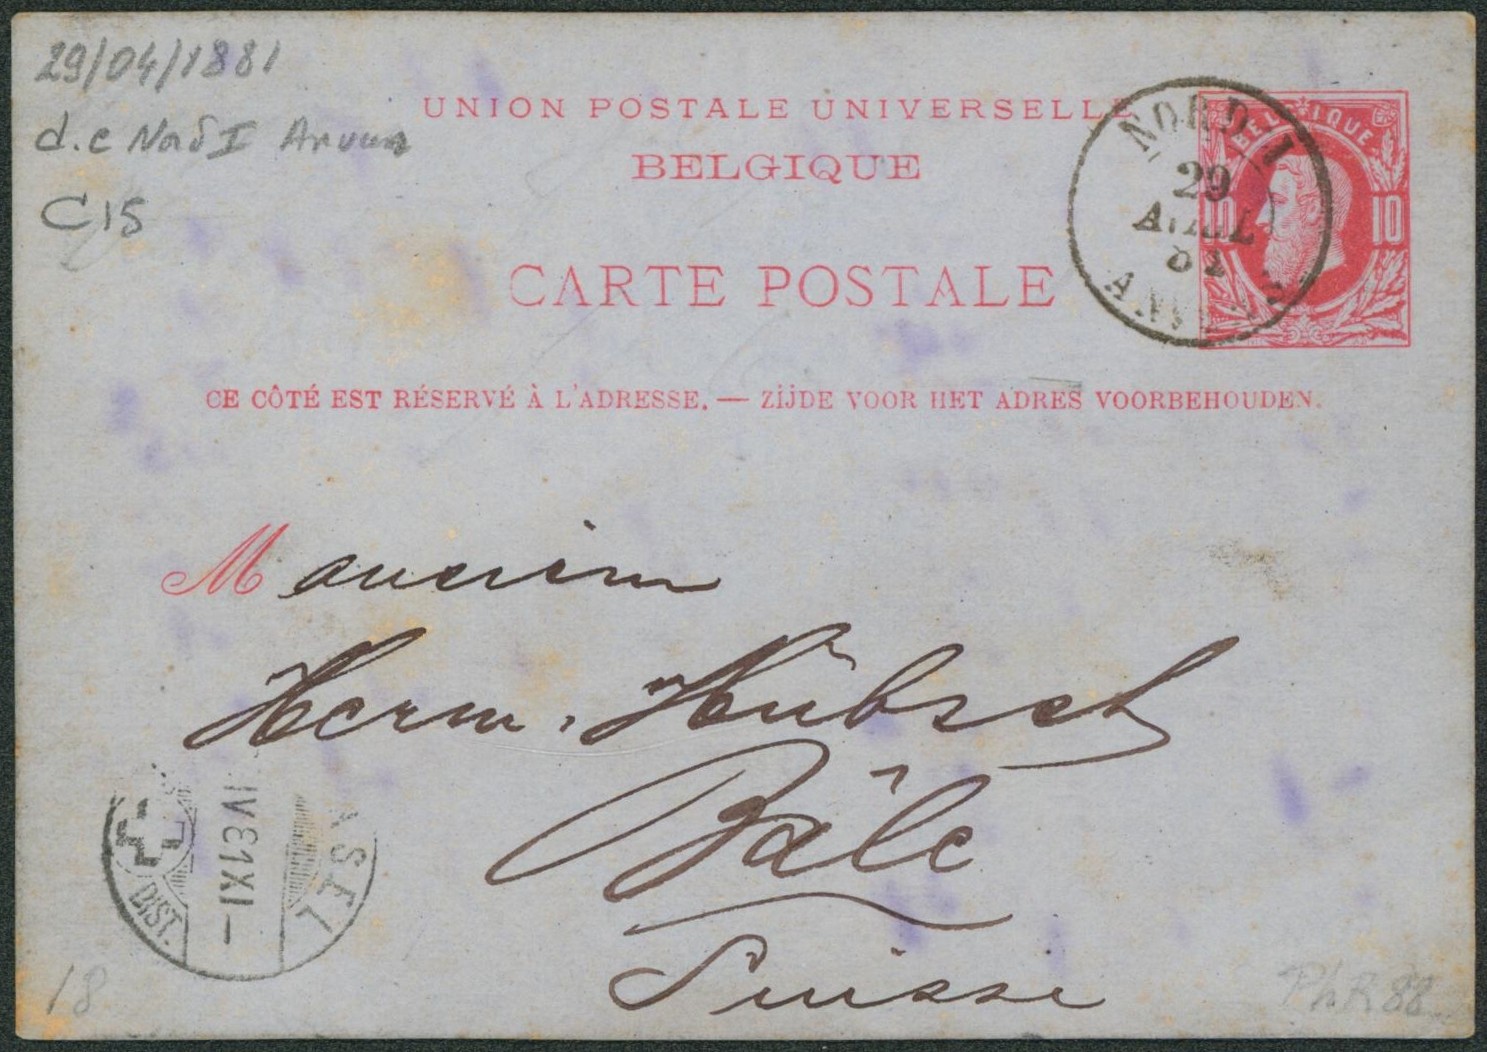 29/04/1881
d.c Nord I Anvers
C15
UNION POSTALE UNIVERSELLE
BELGIQUE
CARTE POSTALE
NORD I
29
AVRIL
81
ANVERS
BELGIQUE
10 10
CE CÔTÉ EST RÉSERVÉ À L'ADRESSE. — ZIJDE VOOR HET ADRES VOORBEHOUDEN.
Monsieur
Herm. Hübsch
Bâle
Suisse
IV 81 XI –
ASEL
DIST.
18
PhR 88